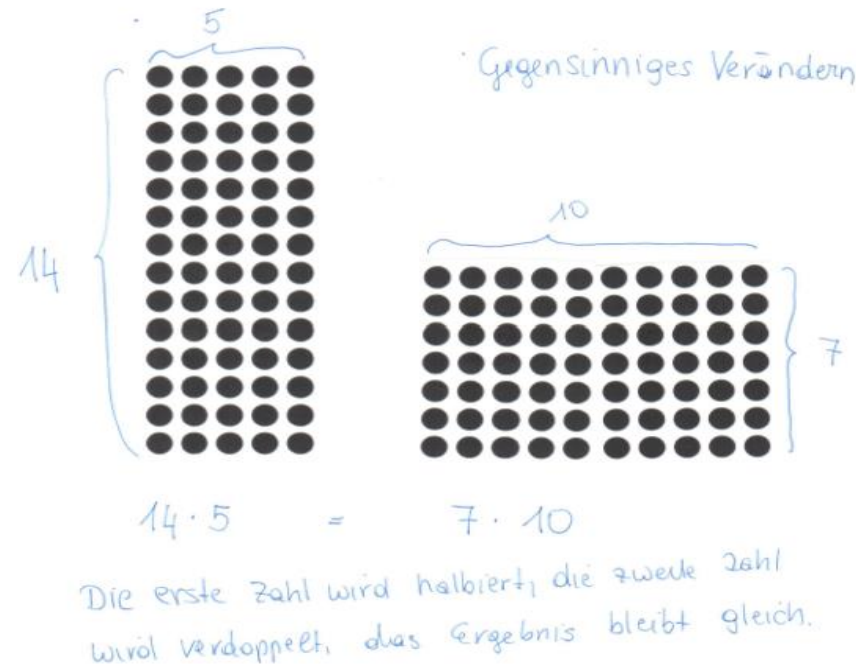 5
Gegensinniges Verändern
14
10
7
14 · 5 = 7 · 10
Die erste Zahl wird halbiert, die zweite Zahl
wird verdoppelt, das Ergebnis bleibt gleich.